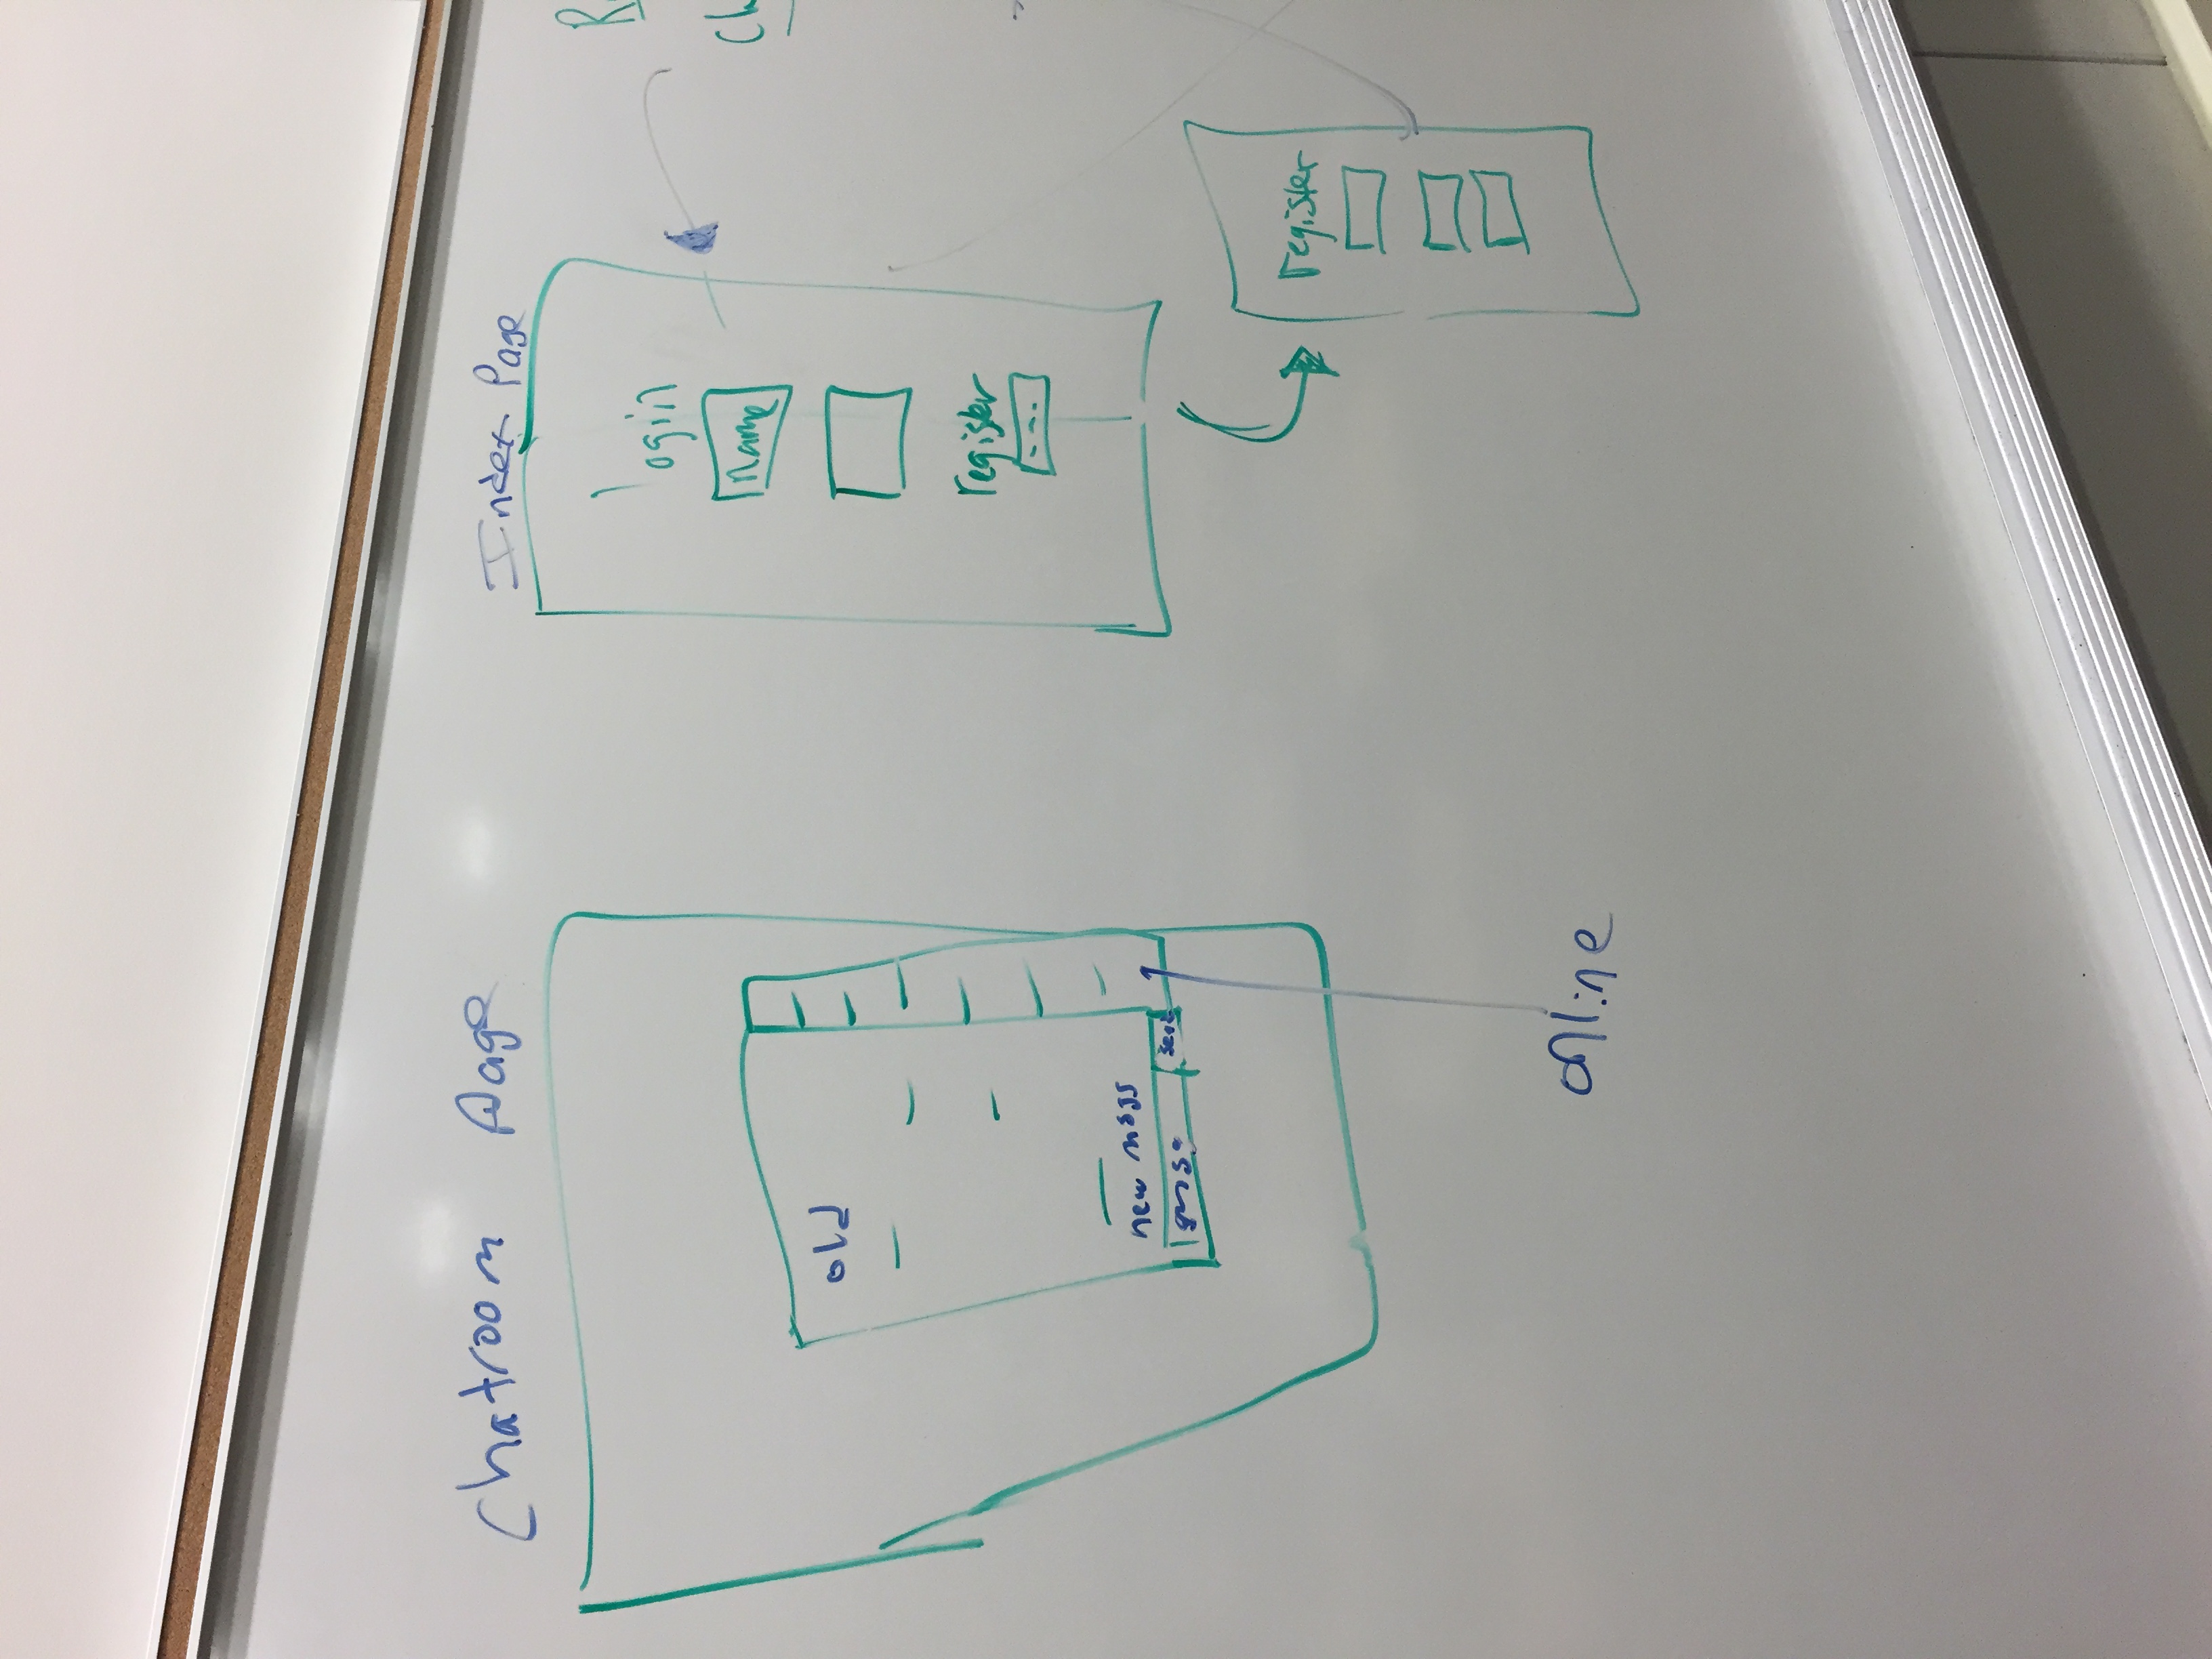 Chatroom Page
old
new msgs
send
online
Index Page
login
name
register
---
register